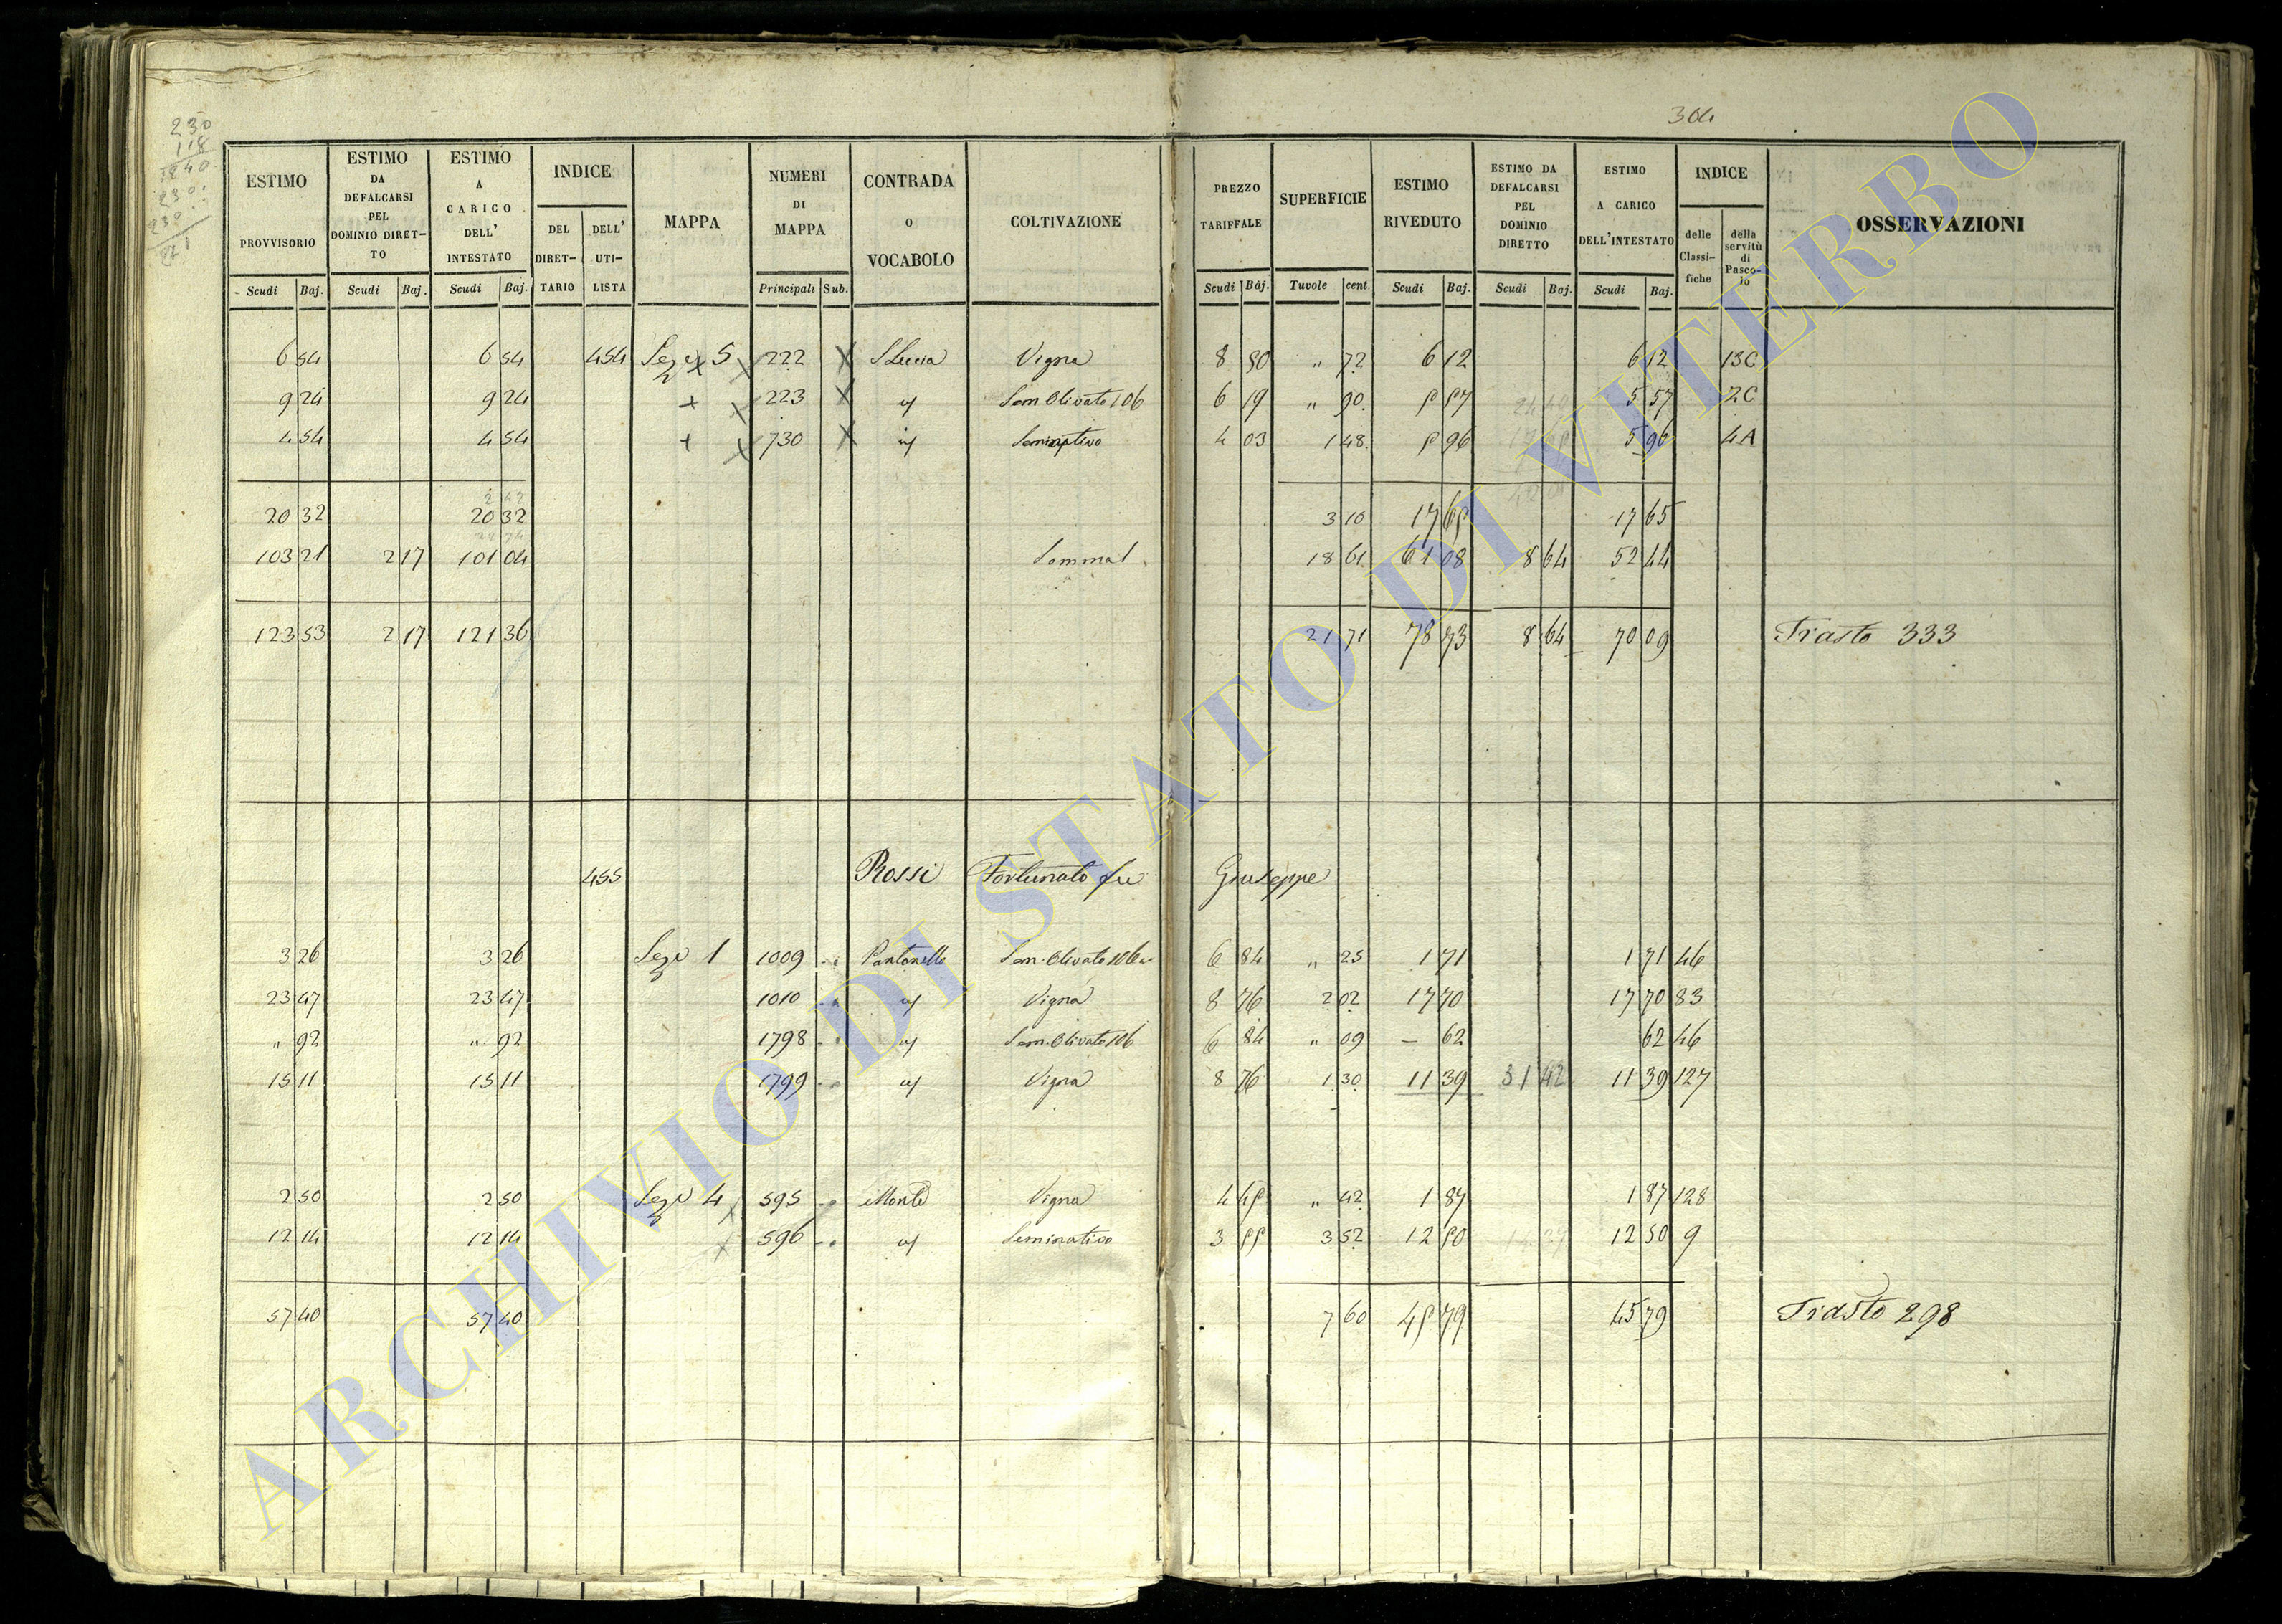 304
230
118
ESTIMO PROVVISORIO
ESTIMO DA DEFALCARSI PEL DOMINIO DIRETTO
ESTIMO A CARICO DELL' INTESTATO
INDICE
DEL DIRETTARIO
DELL' UTILISTA
MAPPA
NUMERI DI MAPPA
CONTRADA O VOCABOLO
COLTIVAZIONE
PREZZO TARIFFALE
SUPERFICIE
ESTIMO RIVEDUTO
ESTIMO DA DEFALCARSI PEL DOMINIO DIRETTO
ESTIMO A CARICO DELL'INTESTATO
INDICE
delle Classifiche
della servitù di Pascolo
OSSERVAZIONI
Scudi Baj. Scudi Baj. Scudi Baj. Principali Sub. Scudi Baj. Tavole cent. Scudi Baj. Scudi Baj. Scudi Baj.
6 54 6 54 454 Sez 5 222 S Lucia Vigna 8 50 " 72 6 12 6 12 13C
9 24 9 24 223 Sem. Olivato 106 6 19 " 90 5 57 5 57 2C
4 54 4 54 730 Seminativo 4 03 1 48 5 96 5 96 4A
20 32 20 32 3 10 17 65 17 65
103 21 2 17 101 04 Somma 18 61 61 08 8 64 52 44
123 53 2 17 121 36 21 71 78 73 8 64 70 09 Trasto 333
455 Rossi Fortunato fu Giuseppe
3 26 3 26 Sez 1 1009 Pantanello Sem. Olivato 106 6 84 " 25 1 71 1 71 46
23 47 23 47 1010 Vigna 8 76 2 02 17 70 17 70 83
" 92 " 92 1798 Sem. Olivato 106 6 84 " 09 — 62 62 46
15 11 15 11 1799 Vigna 8 76 1 30 11 39 31 42 11 39 127
2 50 2 50 Sez 4 595 Monte Vigna 4 45 " 42 1 87 1 87 128
12 14 12 14 596 Seminativo 3 55 3 52 12 50 12 50 9
57 40 57 40 7 60 45 79 45 79 Trasto 298
ARCHIVIO DI STATO DI VITERBO